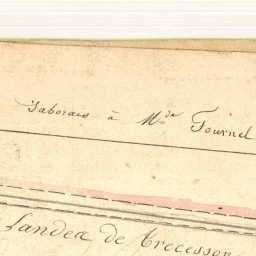 Taborais à Mde Fournel
Landea de Crecesson